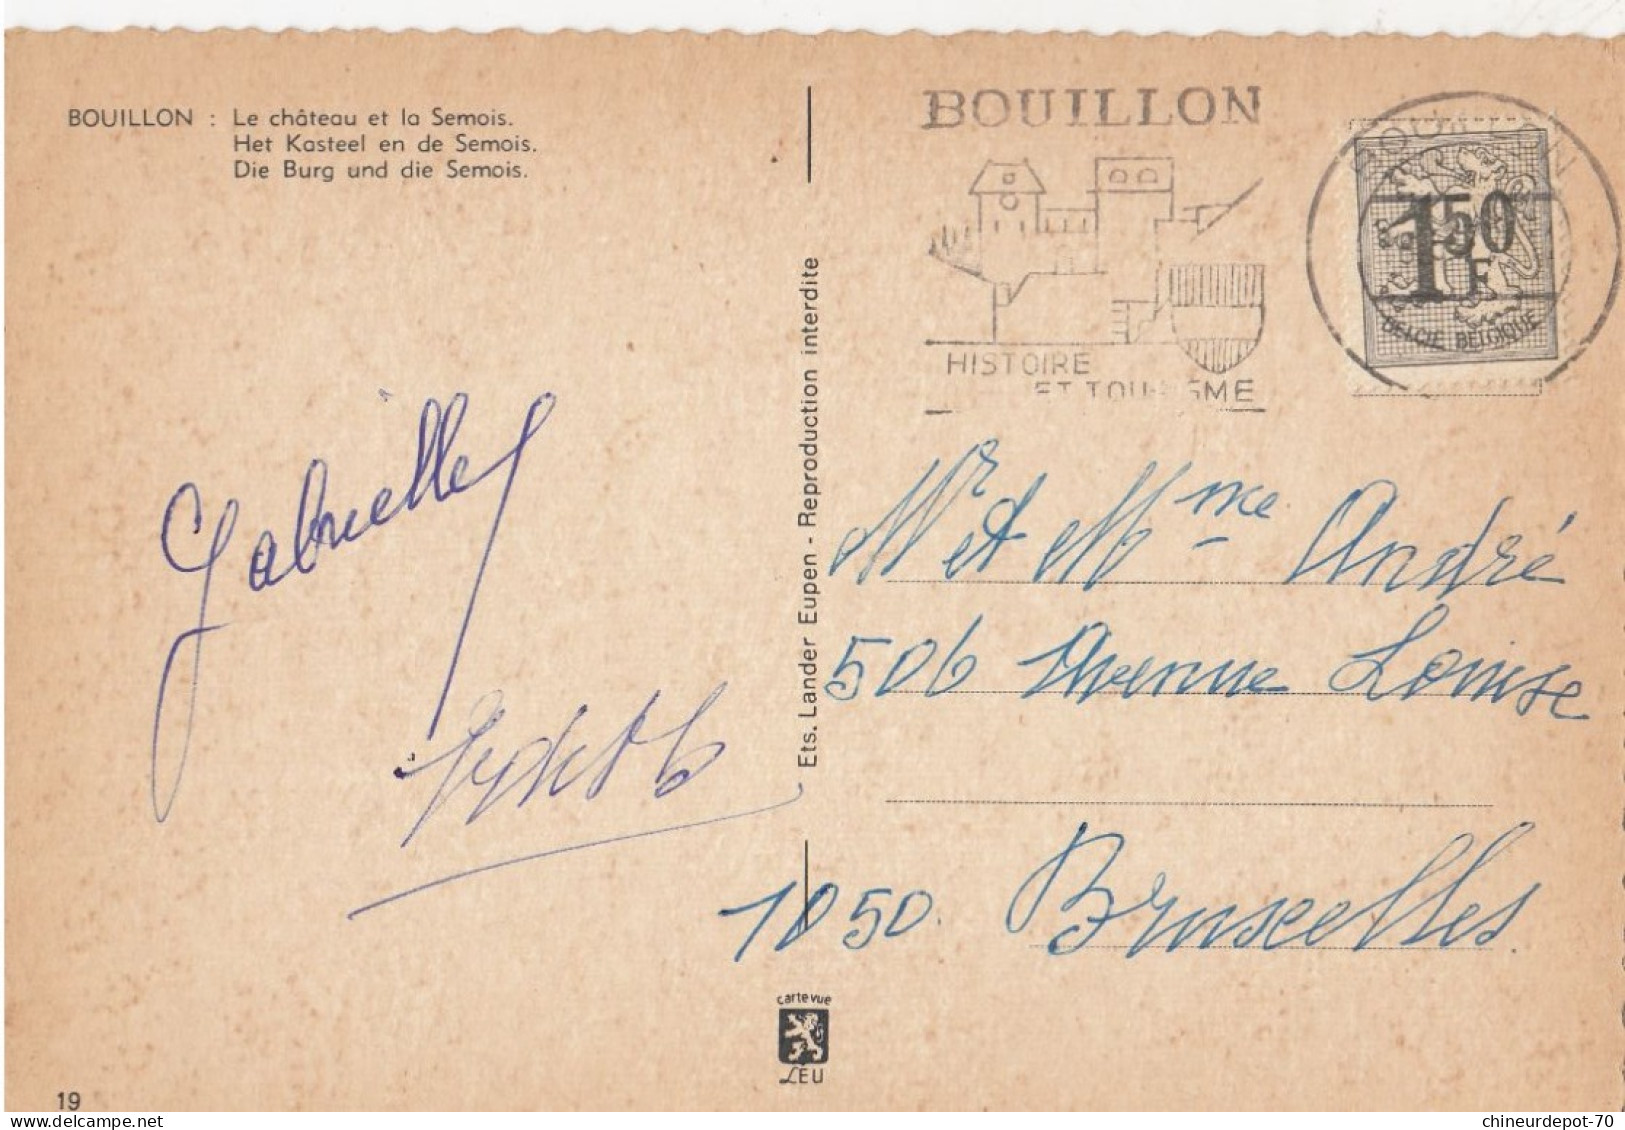 BOUILLON : Le château et la Semois.
Het Kasteel en de Semois.
Die Burg und die Semois.
BOUILLON
HISTOIRE
ET TOURISME
BOUILLON
1 50
F
BELGIË BELGIQUE
Gabrielle
Mr et Mme André
506 Avenue Louise
1050 Bruxelles
Ets. Lander Eupen - Reproduction interdite
carte vue
LEU
19
chineurdepot-70